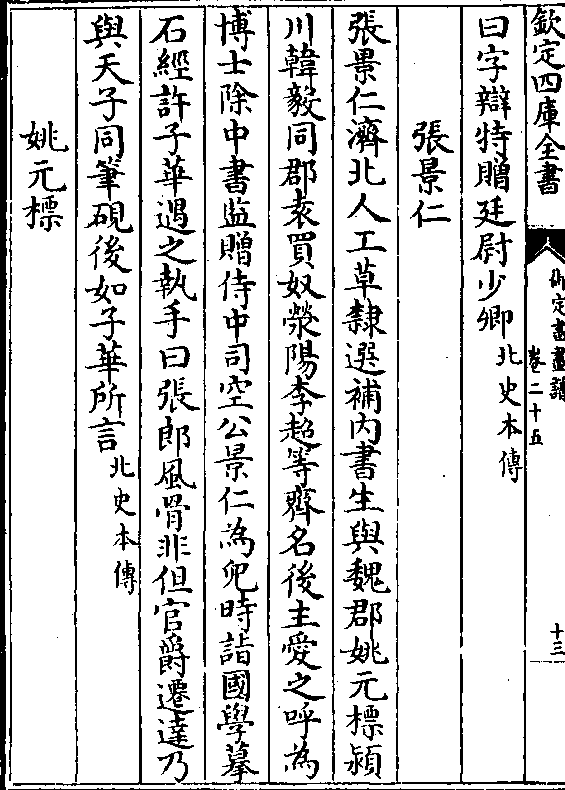 欽定四庫全書
御定書畫譜
卷二十五
十三
曰字辯特贈廷尉少卿北史本傳
張景仁
張景仁濟北人工草隸選補内書生與魏郡姚元標潁
川韓毅同郡袁買奴滎陽李超等齊名後主愛之呼為
博士除中書監贈侍中司空公景仁為兒時詣國學摹
石經許子華遇之執手曰張郎風骨非但官爵遷達乃
與天子同筆硯後如子華所言北史本傳
姚元標